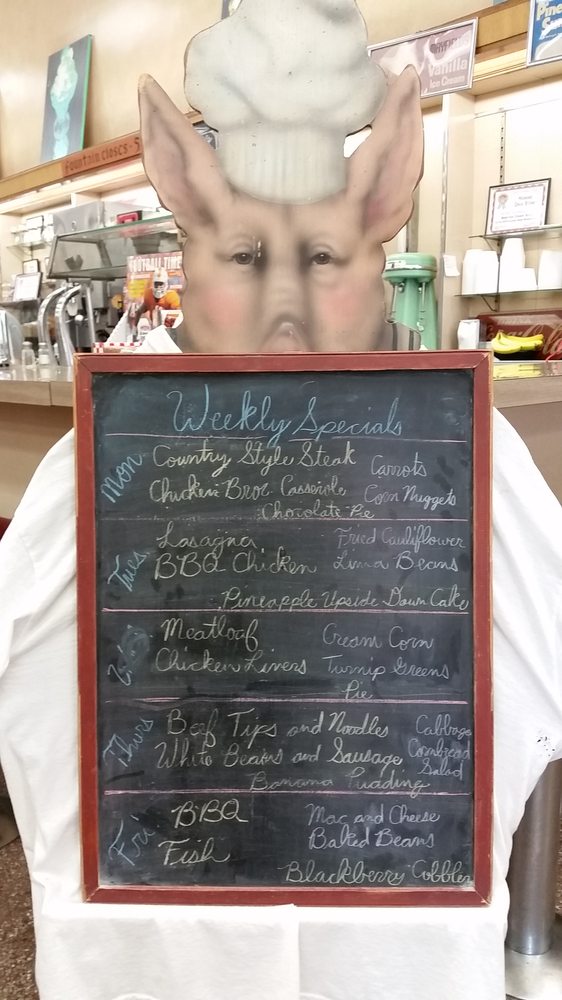 Pine
Vanilla
Ice Cream
fountain closes - 5
FOOTBALL TIME
Weekly Specials
Mon
Country Style Steak Carrots
Chicken Broc Casserole Corn Nuggets
Chocolate Pie
Tues.
Lasagna Fried Cauliflower
BBQ Chicken Lima Beans
Pineapple Upside Down Cake
Meatloaf Cream Corn
Chicken Livers Turnip Greens
Pie
Thurs
Beef Tips and Noodles Cabbage
White Beans and Sausage Cornbread Salad
Banana Pudding
Fri
BBQ Mac and Cheese
Fish Baked Beans
Blackberry Cobbler